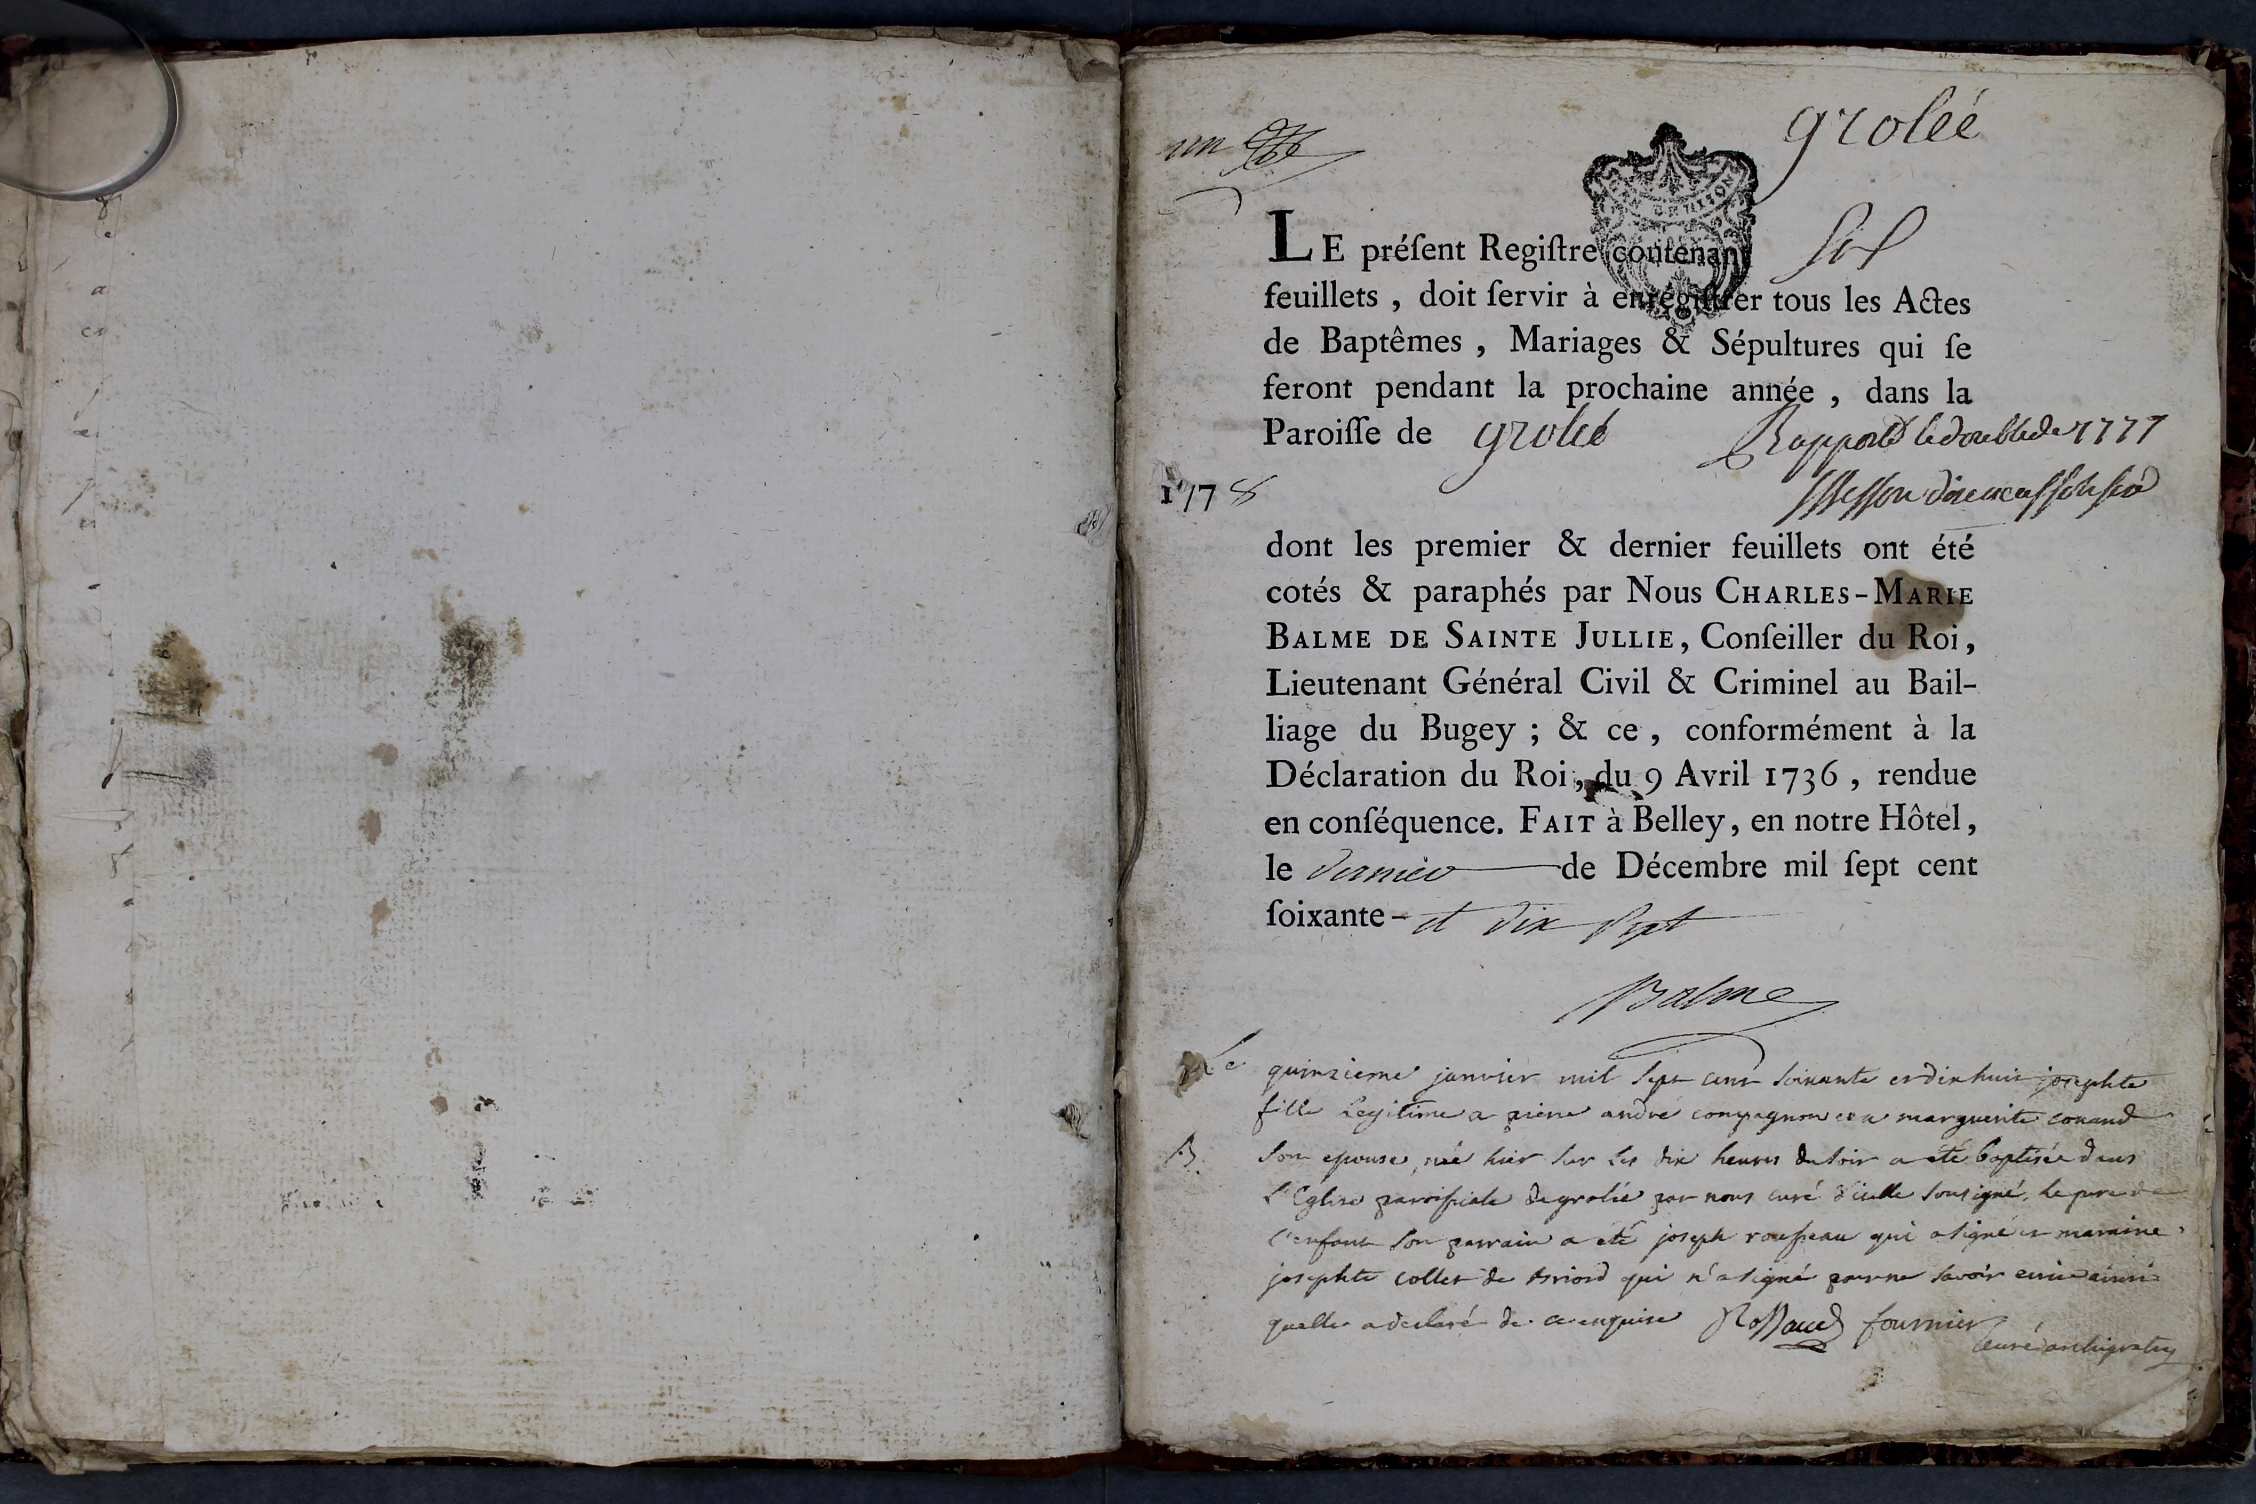 grolée
un
LE préſent Regiſtre contenant six
feuillets, doit ſervir à enrégiſtrer tous les Actes
de Baptêmes, Mariages & Sépultures qui ſe
feront pendant la prochaine année, dans la
Paroiſſe de grolée
Rapporté le double de 1777
1778
dont les premier & dernier feuillets ont été
cotés & paraphés par Nous CHARLES-MARIE
BALME DE SAINTE JULLIE, Conſeiller du Roi,
Lieutenant Général Civil & Criminel au Bail-
liage du Bugey; & ce, conformément à la
Déclaration du Roi, du 9 Avril 1736, rendue
en conſéquence. FAIT à Belley, en notre Hôtel,
le dernier de Décembre mil ſept cent
ſoixante- et dix sept
Balme
Le quinzieme janvier mil sept cent soixante et dix huit josephte
fille Legitime a pierre andré compagnon et a marguerite conand
B. son epouse, née hier sur les dix heures du soir a été baptisée dans
L'Eglise paroissiale de grolée par nous curé d'icelle soussigné, le pere de
l'enfant son parrain a été joseph rousseau qui a signé et maraine
josephte collet de Briord qui n'a signé pour ne savoir ecrire ainsi
quelle a declaré de ce enquise Rossaud fournier
curé archipretre